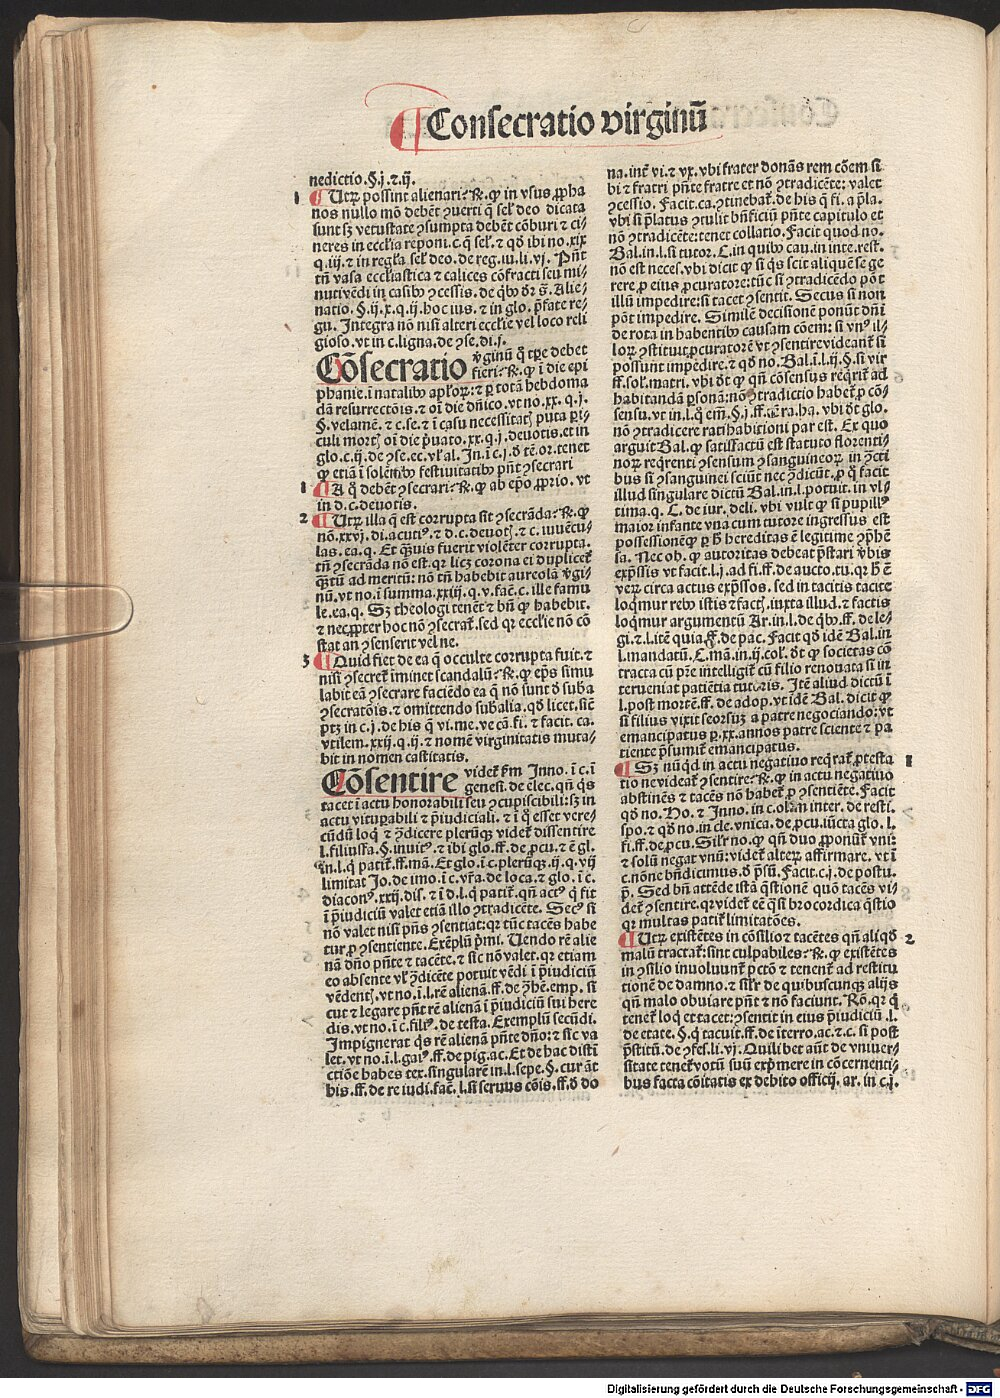 ¶ Consecratio virginũ
nedictio.§.j.⁊.ij.
1 ¶ Utrꝝ possint alienari? R̃. ꝙ in vsus ꝓpha
nos nullo mõ debẽt ꝯuerti q̃ sel̃ deo dicata
sunt sꝫ vetustate ꝯsumpta debẽt cõburi ⁊ ci-
neres in ecclĩa reponi.c.q̃ sel̃.⁊ qđ ibi no.xix
q.iij.⁊ in regl̃a sel̃ deo.de reg.iu.li.vj. Pñt
tñ vasa ecclĩastica ⁊ calices cõfracti seu mi-
nuti vẽdi in casibꝰ ꝯcessis.de qbꝰ dr̃ s̃. Alie-
natio.§.ij.x.q.ij.hoc ius.⁊ in glo.p̃fate re-
gu. Integra nõ nisi alteri ecclĩe vel loco reli
gioso.vt in c.ligna.de ꝯse.di.j.
Cõsecratio v̓ginũ q̃ tpe debet
fieri? R̃. ꝙ ĩ die epi
phanie.ĩ natalibꝰ apl̃oꝝ.⁊ ꝑ totã hebdoma
dã resurrectõis.⁊ oĩ die dñico.vt no.xx.q.j.
§.velamẽ.⁊ c.se.⁊ ĩ casu necessitatꝭ puta ꝑi-
culi mortꝭ oĩ die p̃uato.xx.q.j.deuotis.et in
glo.c.ij.de ꝯse.ec.vl̃ al. Jn.ĩ c.j.đ tẽ.or.tenet
ꝙ etiã ĩ solẽnibꝰ festiuitatibꝰ pñt ꝯsecrari
1 ¶ A q̃ debẽt ꝯsecrari? R̃. ꝙ ab ep̃o ꝓprio. vt
in d.c.deuotis.
2 ¶ Utrꝝ illa q̃ est corrupta sit ꝯsecrãda? R̃. ꝙ
nõ.xxvj.di.acutiꝰ.⁊ d.c.deuotꝭ.⁊ c.iuuẽcu-
las.ea.q. Et q̃uis fuerit violẽter corrupta.
tñ ꝯsecrãda nõ est.qr licꝫ corona ei duplicet̃
q̃ꝫtũ ad meritũ: nõ tñ habebit aureolã v̓gi-
nũ.vt no.ĩ summa.xxiij.q.v.fac̃.c.ille famu
le.ea.q. Sꝫ theologi tenẽt ⁊ bñ ꝙ habebit.
⁊ necꝓpter hoc nõ ꝯsecrat̃.sed qr ecclĩe nõ cõ
stat an ꝯsenserit vel ne.
3 ¶ Quid fiet de ea q̃ occulte corrupta fuit.⁊
nisi ꝯsecret̃ iminet scandalũ? R̃. ꝙ ep̃s simu
labit eã ꝯsecrare faciẽdo ea q̃ nõ sunt đ suba
ꝯsecratõis.⁊ omittendo sub̃alia.qđ licet.sic̃
ptꝫ in c.j.de his q̃ vi.me.ve cã.fi.⁊ facit.ca.
vtilem.xxij.q.ij.⁊ nomẽ virginitatis muta-
bit in nomen castitatis.
Cõsentire videt̃ ẜm Inno.ĩ c.ĩ
genesi.de elec.qñ qs
tacet ĩ actu honorabili seu ꝯcupiscibili:sꝫ in
actu vituꝑabili ⁊ p̃iudiciali.⁊ ĩ q̃ esset vere-
cũdũ loq̃ ⁊ ꝯ̃dicere plerũqꝫ videt̃ dissentire
l.filiusfa.§.inuitꝰ.⁊ ibi glo.ff.de ꝓcu.⁊ ẽ gl.
in.l.q̃ patit̃.ff.mã. Et glo.ĩ c.plerũqꝫ.ij.q.vij
limitat Jo.de imo.ĩ c.vr̃a.de loca.⁊ glo.ĩ c.
diaconꝰ.xxij.dis.⁊ ĩ d.l.q̃ patit̃.qñ actꝰ q̃ fit
ĩ p̃iudiciũ valet etiã illo ꝯtradicẽte. Secꝰ si
nõ valet nisi pñs ꝯsentiat: qr tũc tacẽs habe
tur ꝓ ꝯsentiente. Exẽplũ p̃mi. Uendo rẽ alie
nã dño pñte ⁊ tacẽte.⁊ sic nõ valet.qr etiam
eo absente vl̃ ꝯ̃dicẽte potuit vẽdi ĩ p̃iudiciũ
vẽdentꝭ.vt no.ĩ.l.rẽ alienã.ff.de ꝯ̃hẽ.emp.si
cut ⁊ legare pñt rẽ alienã ĩ p̃iudiciũ sui here
dis.vt no.ĩ c.filiꝰ.de testa. Exemplũ secũdi.
Impignerat qs rẽ alienã pñte dño: ⁊ sic va
let.vt no.ĩ.l.gaiꝰ.ff.de pig.ac. Et de hac distĩ
ctiõe habes tex.singularẽ in.l.sepe.§.cur ãt
bis.ff.de re iudi.fac̃.l.si seruus cõis.ff.đ do
na.int̃ vi.⁊ vx.vbi frater donãs rem cõem si
bi ⁊ fratri pñte fratre et nõ ꝯtradicẽte: valet
ꝯcessio. Facit.ca.ꝯtinebat̃.de his q̃ fi.a p̃la.
vbi si p̃latus ꝯtulit bñficiũ pñte capitulo et
nõ ꝯtradicẽte: tenet collatio. Facit quod no.
Bal.in.l.si tutor.C.in quibꝰ cau.in inte.rest.
nõ est neces.vbi dicit ꝙ si qs scit aliquẽ se ge
rere ꝓ eius ꝓcuratore: tũc si ꝯtradicẽdo põt
illũ impedire: si tacet ꝯsentit. Secus si non
põt impedire. Similẽ decisionẽ ponũt dñi
de rota in habentibꝰ causam cõem: si vnꝰ il-
loꝝ ꝯstituit ꝓcuratorẽ vt ꝯsentire videant̃ si
possunt impedire.⁊ qđ no. Bal.ĩ.l.ij.§.si vir
ff.sol.matri.vbi dt ꝙ qñ cõsensus reqrit̃ ad
habitandã ꝑsonã: nõ ꝯtradictio habet̃ ꝓ cõ-
sensu.vt in.l.q̃ em̃.§.j.ff.cẽ ra.ha.vbi dt glo.
nõ ꝯtradicere ratihabitioni par est. Ex quo
arguit Bal.ꝙ satisfactũ est statuto florenti-
noꝝ reqrenti ꝯsensum ꝯsanguineoꝝ in ꝯ̃cti
bus si ꝯsanguinei sciũt nec ꝯ̃dicũt.ꝑ q̃ facit
illud singulare dictũ Bal.in.l.potuit.in vl-
tima.q. C. de iur.deli.vbi vult ꝙ si pupillꝰ
maior infante vna cum tutore ingressus est
possessionẽ ꝙ ꝑ h̃ hereditas ẽ legitime ꝯp̃hẽ
sa. Nec ob.ꝙ autoritas debeat p̃stari v̓bis
exp̃ssis vt facit.l.j.ad fi.ff.de aucto.tu.qr h̃ ẽ
verꝝ circa actus exp̃ssos.sed in tacitis tacite
loqmur rebꝰ istis ⁊ factꝭ.iuxta illud.⁊ factis
loqmur argumentũ Ar.in.l.de qbꝰ.ff.de le-
gi.⁊.l.itẽ quia.ff.de pac. Facit qđ idẽ Bal.in
l.mandatũ.C.mã.in.ij.col̃.dt ꝙ societas cõ
tracta cũ pr̃e intelligit̃ cũ filio renouata si in
terueniat patiẽtia tutoris. Itẽ aliud dictũ ĩ
l.post mortẽ.ff.de adop.vt idẽ Bal.dicit ꝙ
si filius vixit seorsuꝫ a patre negociando: vt
emancipatus ꝑ.xx.annos patre sciente ⁊ pa
tiente p̃sumit̃ emancipatus.
1 ¶ Sꝫ nũqd in actu negatiuo reqrat̃ ꝓtesta
tio ne videat̃ ꝯsentire? R̃. ꝙ in actu negatiuo
abstinẽs ⁊ tacẽs nõ habet̃ ꝑ ꝯsentiẽte. Facit
qđ no. Ho.⁊ Inno.in c.olim inter.de resti.
spo.⁊ qđ no.in cle.vnica.de ꝓcu.iũcta glo.l.
fi.ff.de ꝓcu. Silr̃ no.ꝙ qñ duo ꝓponũt̃ vni:
⁊ solũ negat vnũ: videt̃ alteꝝ affirmare. vt ĩ
c.nõne bñdicimus.đ p̃sũ. Facit.c.j.de postu.
p̃. Sed bñ attẽde istã q̃stionẽ quõ tacẽs vi-
det̃ ꝯsentire.qr videt̃ eẽ q̃si brocordica q̃stio
qr multas patit̃ limitatões.
2 ¶ Utrꝝ existẽtes in cõsilio ⁊ tacẽtes qñ aliqđ
malũ tractat̃: sint culpabiles? R̃. ꝙ existẽtes
in ꝯsilio inuoluunt̃ pctõ ⁊ tenent̃ ad restitu
tionẽ de damno.⁊ silr̃ de quibuscunqꝫ alijs
qñ malo obuiare pñt ⁊ nõ faciunt. Rõ.qr q̃
tenet̃ loq̃ et tacet: ꝯsentit in eius p̃iudiciũ.l.
de etate.§.q̃ tacuit.ff.de ĩterro.ac.⁊ c. si post
p̃stitũ.de ꝯfes.li.vj. Quilibet aũt de vniuer-
sitate tenet̃ votũ suũ exp̃mere in cõcernenti-
bus facta cõitatis ex debito officij. ar. in c.j.
Digitalisierung gefördert durch die Deutsche Forschungsgemeinschaft - DFG